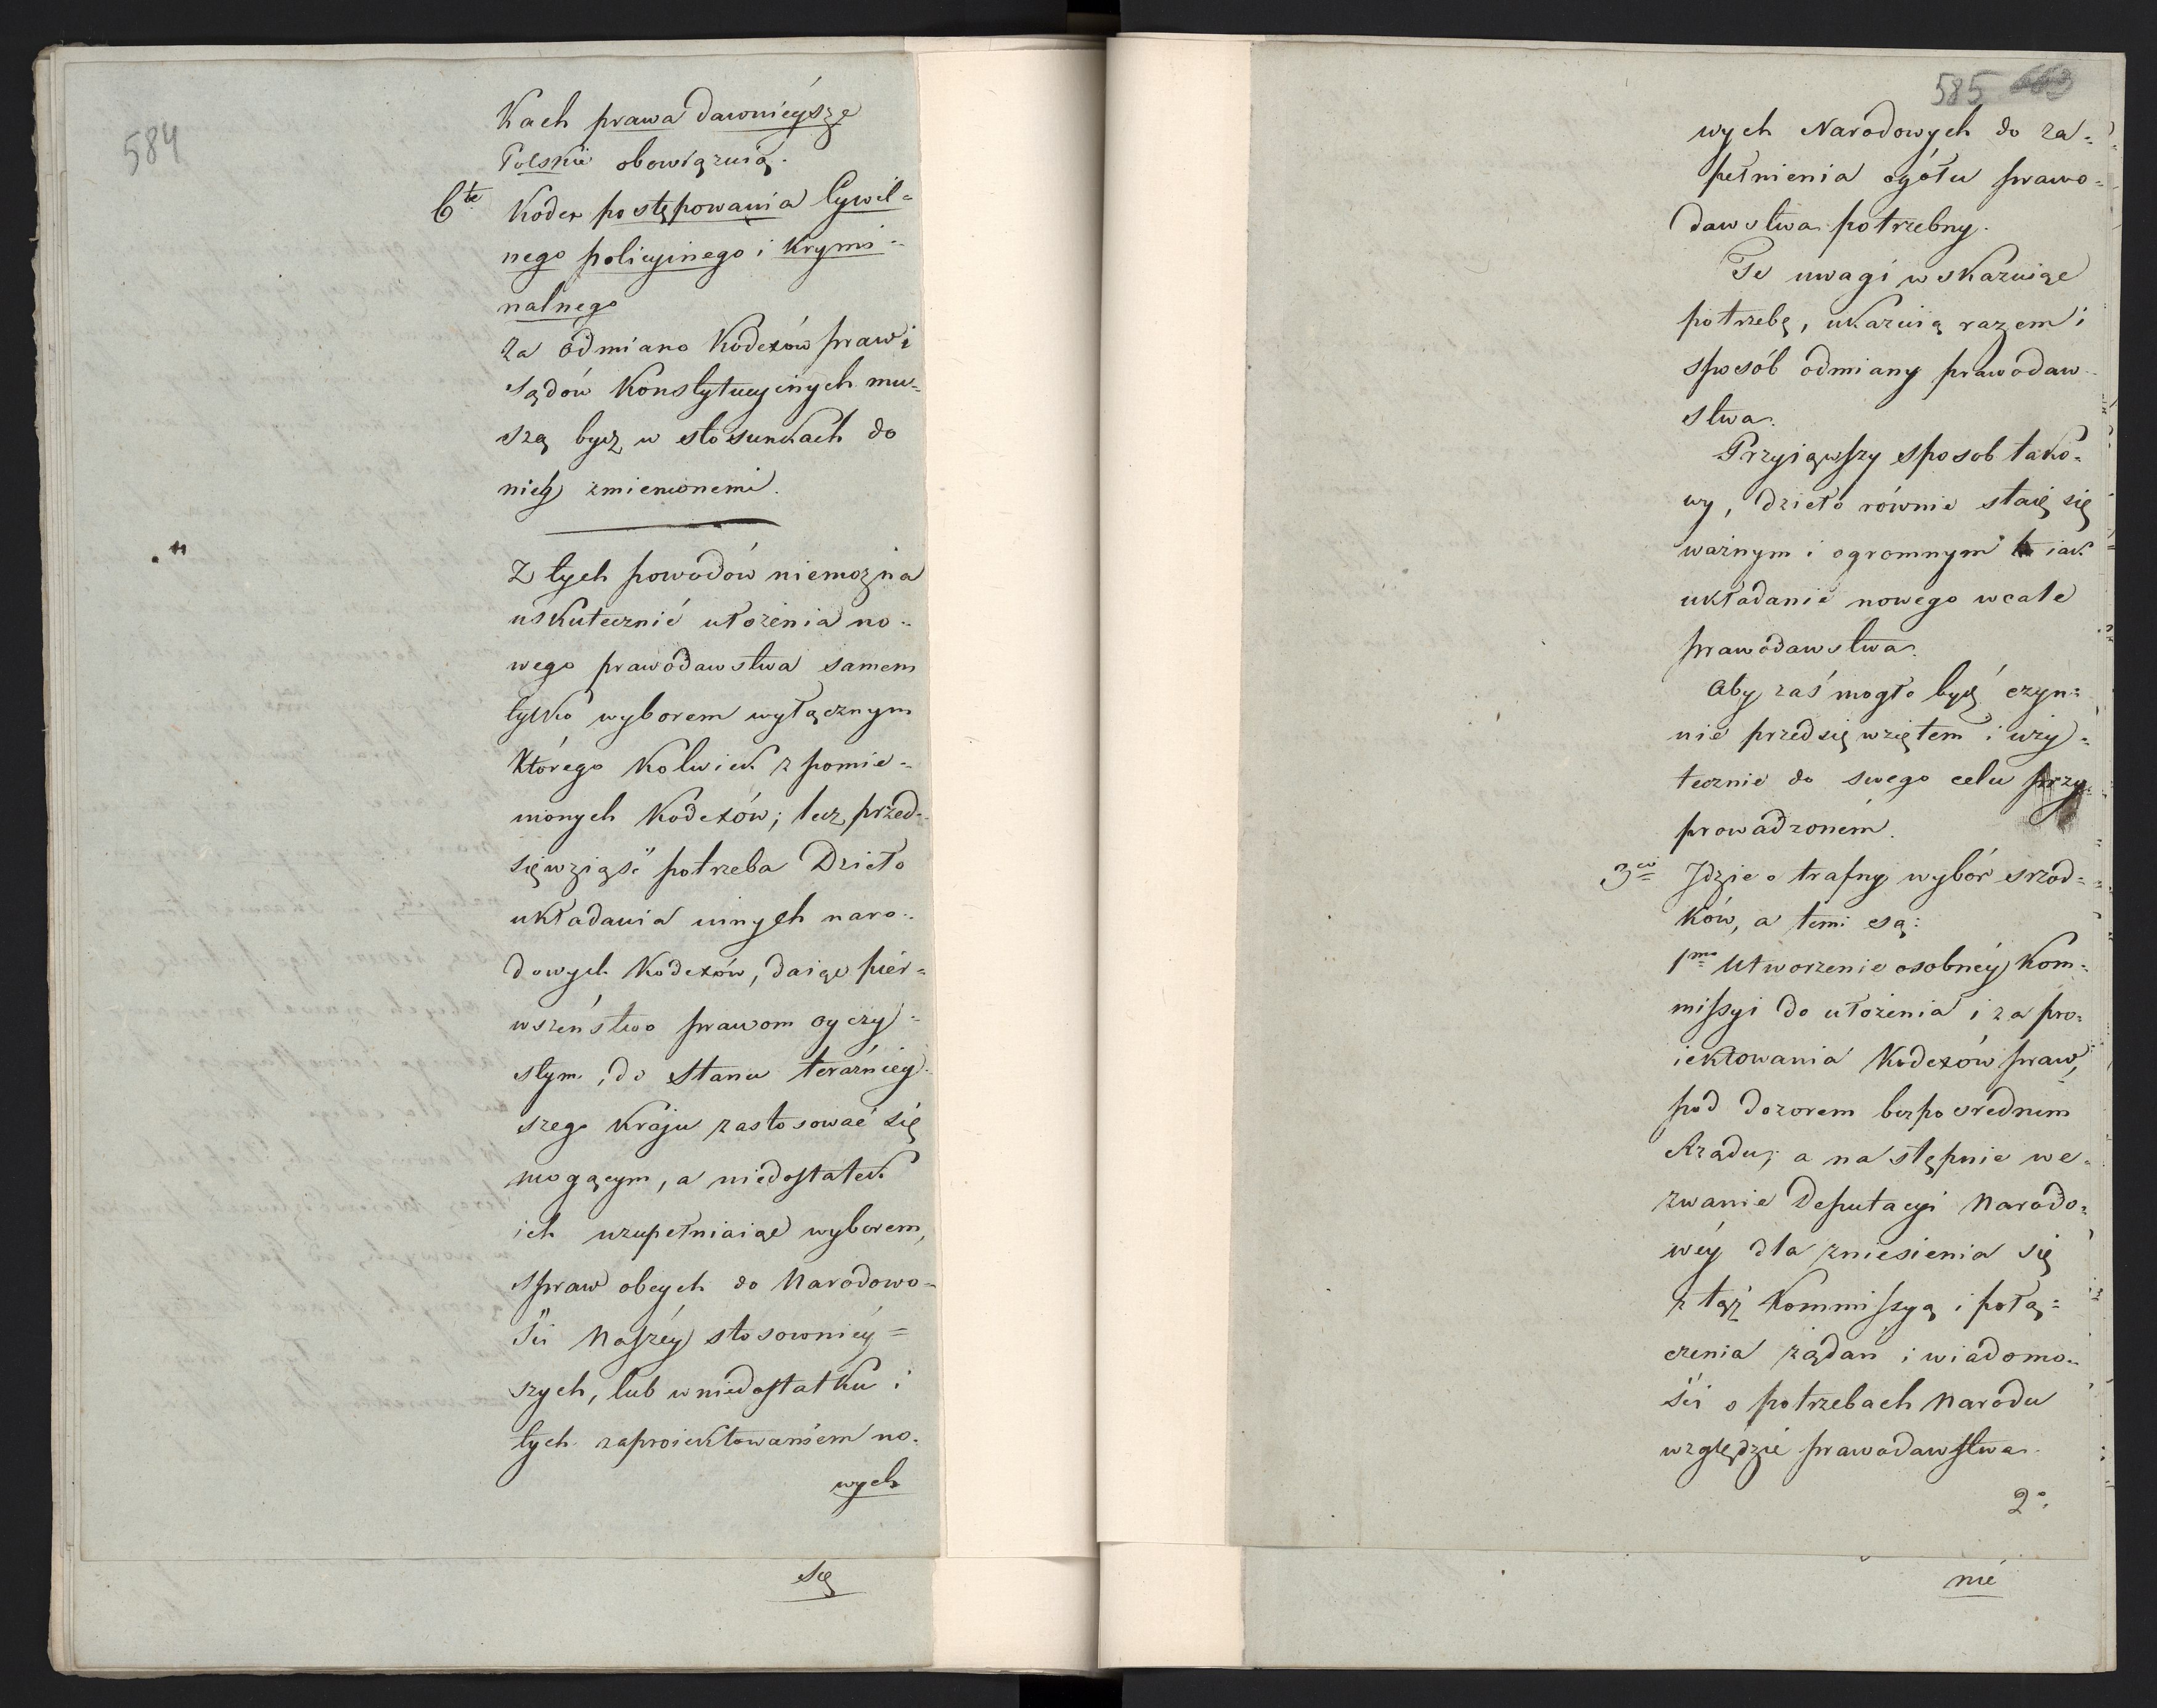 584
Kach prawa dawnieysze
Polskie obowiązuią.
6te Kodex postępowania Cywil=
nego policyinego i Krymi=
nalnego
za odmiano Kodexów praw i
sądów Konstytucyinych mu=
szą bydz w stosunkach do
nich zmienionemi.
Z tych powodów niemożna
uskutecznić ułożenia no=
wego prawodawstwa samem
tylko wyborem wyłącznym
Którego kolwiek z pomie=
nionych Kodexów; lecz przed=
sięwziąść potrzeba Dzieło
układania innych naro=
dowych Kodexów, daiąc pier=
wszeństwo prawom oyczy=
stym, do Stanu teraźniey=
szego Kraju zastosować się
mogącym, a niedostatek
ich uzupełniaiąc wyborem,
spraw obcych do Narodowo=
ści Naszéy stosowniey=
szych, lub w niedostatku i
tych zaproiektowaniem no=
wych
są
585
wych Narodowych do za=
pełnienia ogółu prawo=
dawstwa potrzebny.
Te uwagi wskazuiąc
potrzebę, ukazuią razem i
sposób odmiany prawodaw=
stwa.
Przyiąwszy sposob tako=
wy, dzieło równie staie się
ważnym i ogromnym iak
układanie nowego wcale
prawodawstwa.
Aby zaś mogło być czyn=
nie przedsięwziętem i uży=
tecznie do swego celu przy=
prowadzonem.
3cie Idzie o trafny wybór srzod=
ków, a temi są:
1mo Utworzenie osobnéy Kom=
missyi do ułożenia i zapro=
iektowania Kodexów praw,
pod dozorem bezpośrednim
Rządu; a następnie we=
zwanie Deputacyi Narodo=
wéy dla zniesienia się
z tąż Kommissyą i połą=
czenia żądań i wiadomo=
ści o potrzebach Narodu
względzie prawodawstwa.
2o.
nie